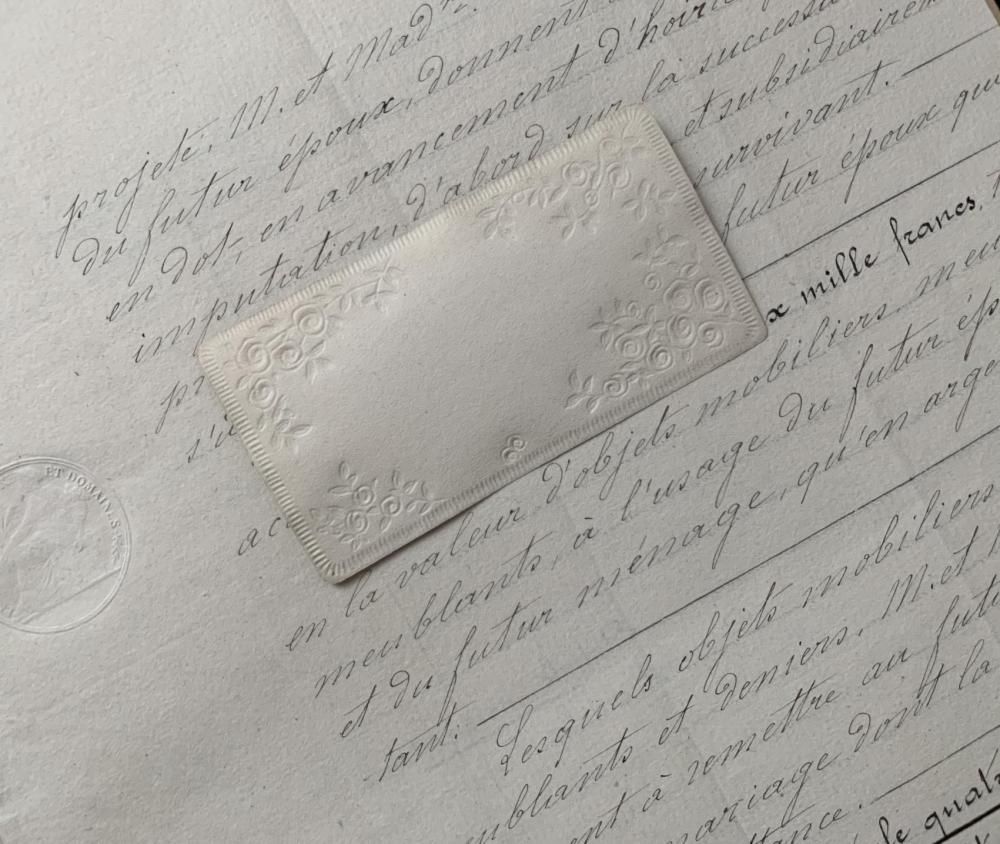 projeté, M. et Mad
du futur époux, donnent
en dot, en avancement d'hoirie
imputation, d'abord sur la successi
et subsidiairem
survivant. —
futur époux qu
x mille francs,
en la valeur d'objets mobiliers meu
meublants, à l'usage du futur ép
et du futur ménage, qu'en arge
tant. —
Lesquels objets mobiliers
ublants et deniers, M. et
ent à remettre au futu
mariage dont la
ttance. —
le quatr
ET DOMAIN